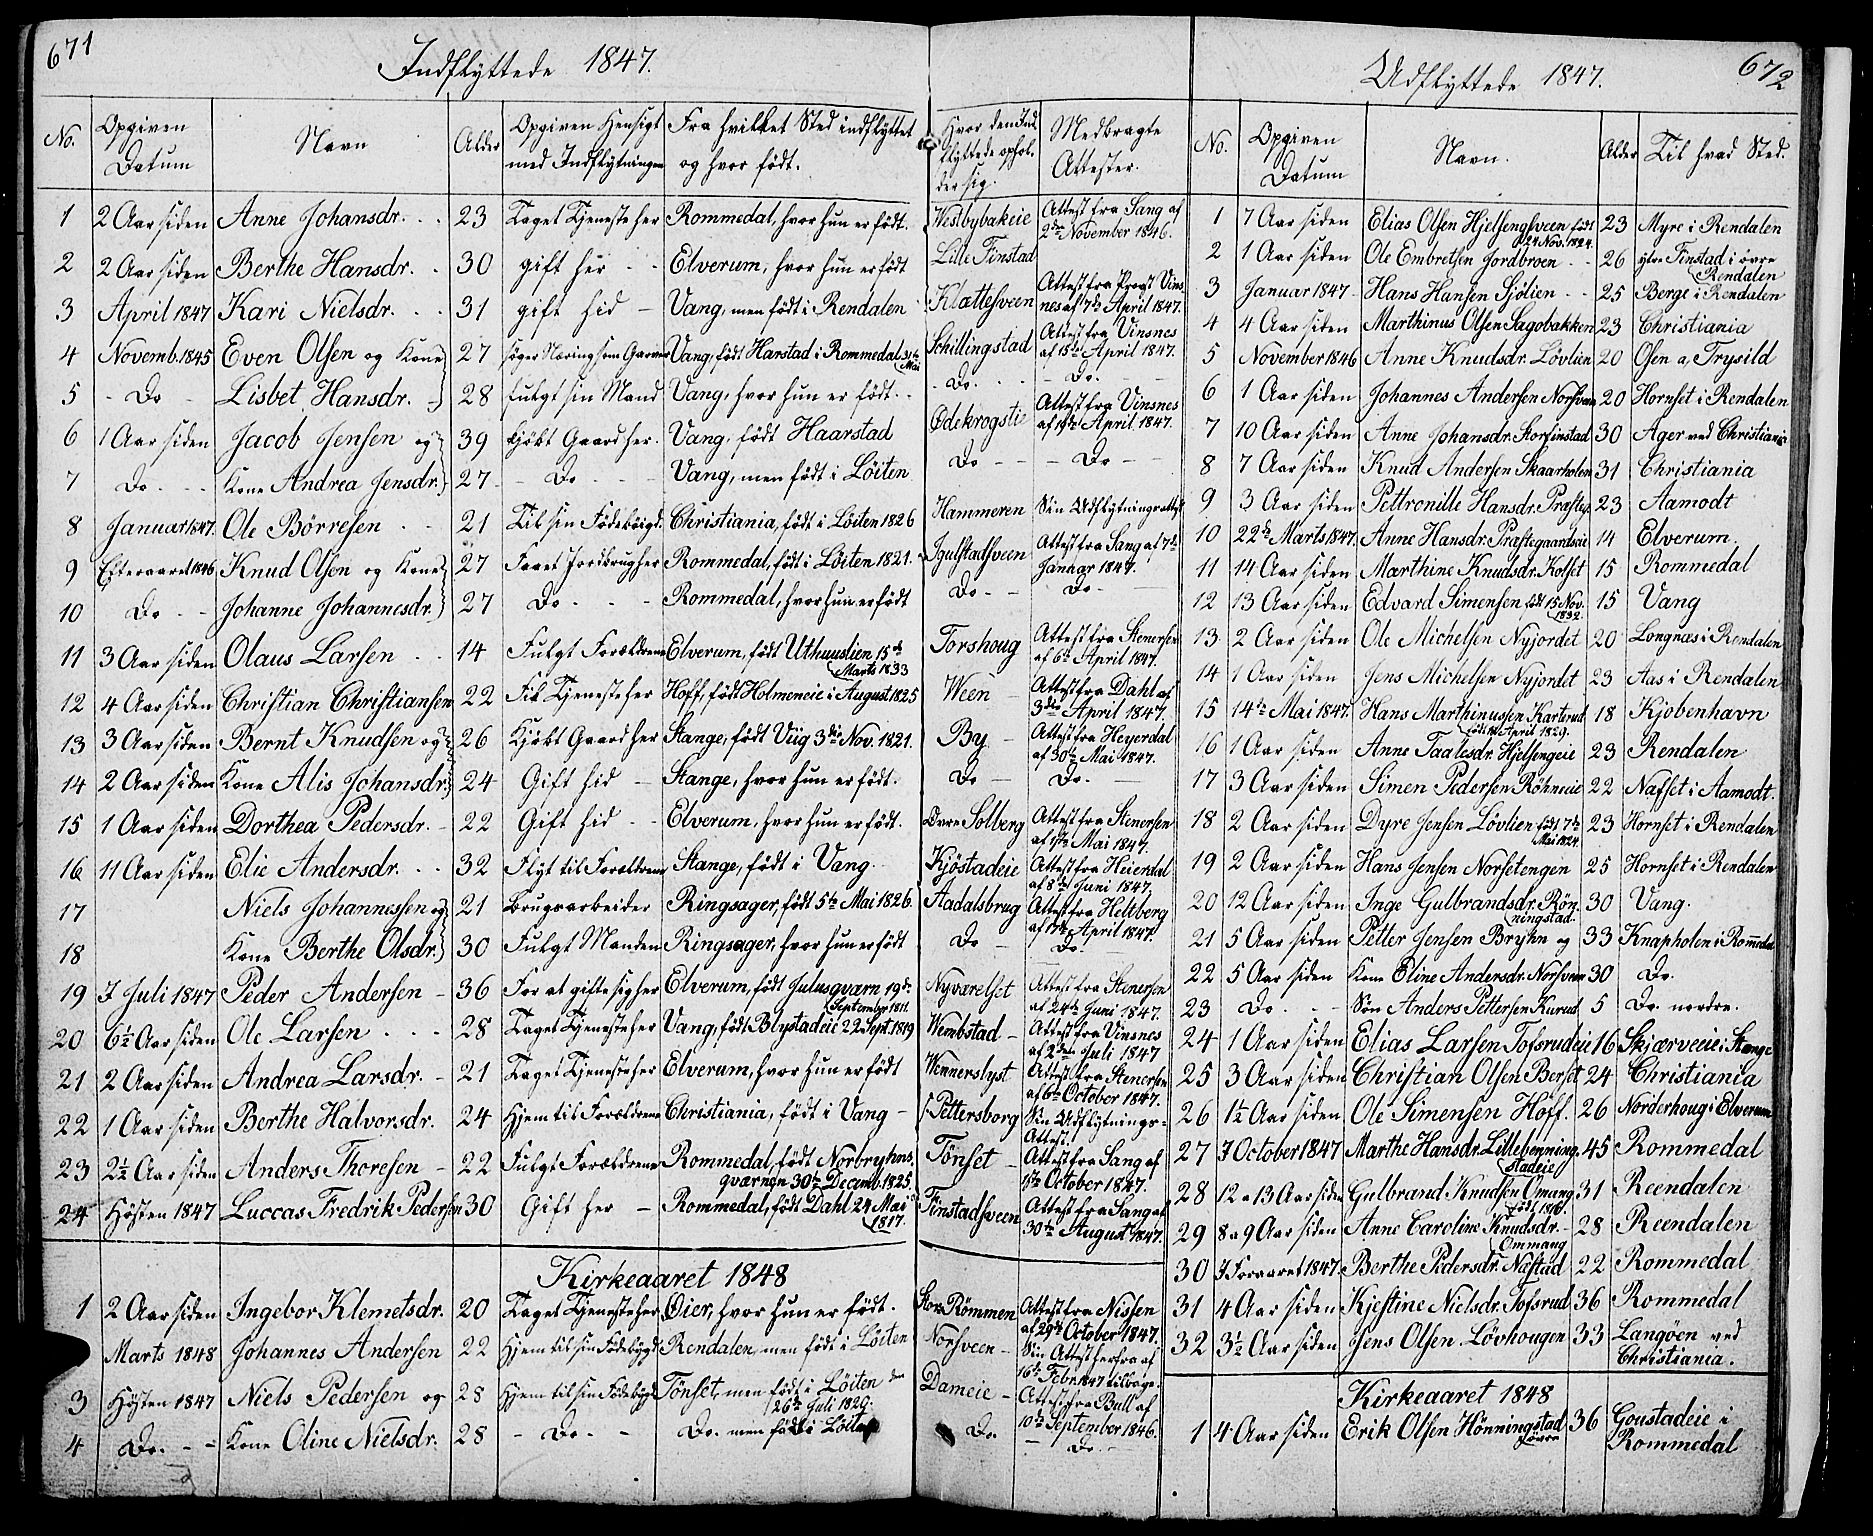 671
Indflyttede 1847.
No. Opgiven Datum Navn Alder Opgiven Hensigt med Indflytningen Fra hvilket Sted indflyttet og hvor født. Hvor den Indflyttede ophol-der sig. Medbragte Attester.
1 2 Aar siden Anne Johansdr. 23 Taget Tjeneste her Rommedal, hvor hun er født. Westbybakeie Attest fra Sang af 2den November 1846.
2 2 Aar siden Berthe Hansdr. 30 gift her Elverum, hvor hun er født Lille Finstad
3 April 1847 Kari Nielsdr. 31 gift hid Vang, men født i Rendalen Klættesveen Attest fra Provst Vinsnes af 7de April 1847.
4 Novemb. 1845 Even Olsen og Kone 27 søger Næring som Garver Vang, født Harstad i Rommedal 31te Mai Schillingstad Attest fra Vinsnes af 15de April 1847.
5 Do Lisbet Hansdr. 28 fulgt sin Mand Vang, hvor hun er født. Do. Do.
6 1 Aar siden Jacob Jensen og 39 kjøbt Gaard her. Vang, født Haarstad Ødekrogstie Attest fra Vinsnes af 19de April 1847.
7 Do Kone Andrea Jensdr. 27 Do Vang, men født i Løiten Do Do
8 Januar 1847. Ole Børresen 21 Til sin Fødebøigd. Christiania, født i Løiten 1826 Hammeren Sin Udflytningsattest
9 Efteraaret 1846 Knud Olsen og Kone 27 Faaet Jordbrug her Rommedal, født i Løiten 1821. Igulstadsveen Attest fra Sang af 7de Januar 1847.
10 Do Johanne Johannesdr. 27 Do Rommedal, hvor hun er født Do Do
11 3 Aar siden Olaus Larsen 14 Fulgt Forældrene Elverum, født Uthuuslien 15de Marts 1833 Torshoug Attest fra Stenersen af 6te April 1847.
12 4 Aar siden Christian Christiansen 22 Fik Tjeneste her Hoff, født Holmeneie i August 1825 Ween Attest fra Dahl af 3die April 1847.
13 3 Aar siden Bernt Knudsen og 26 Kjøbt Gaard her Stange, født Uüg 3die Nov. 1821. By Attest fra Heyerdal af 30te Mai 1847.
14 2 Aar siden Kone Alis Johansdr. 24 Gift hid Stange, hvor hun er født. Do Do.
15 1 Aar siden Dorthea Pedersdr. 22 Gift hid Elverum, hvor hun er født. Øvre Solberg Attest fra Stenersen af 1ste Mai 1847.
16 11 Aar siden Elie Andersdr. 32 Flyt til Forældrene Stange, født i Vang Kjøstadeie Attest fra Heierdal af 8de Juni 1847.
17 Niels Johannessen og 21 Brugsarbeider Ringsager, født 5te Mai 1826. Aadalsbrug Attest fra Heltberg af 17de April 1847.
18 Kone Berthe Olsdr. 30 Fulgt Manden Ringsager, hvor hun er født Do Do.
19 I Juli 1847 Peder Andersen 36 For at gifte sig her Elverum, født Julusqværn 19de September 1811. Nyværelset Attest fra Stenersen af 24de Juni 1847.
20 6½ Aar siden Ole Larsen 28 Taget Tjeneste her Vang, født Blystadeie 22 Sept. 1819 Wembstad Attest fra Vinsnes af 2den Juli 1847
21 2 Aar siden Andrea Larsdr. 21 Taget Tjeneste her Elverum, hvor hun er født Wennerslyst Attest fra Stenersen af 6te October 1847.
22 1 Aar siden Berthe Halvorsdr. 24 Hjem til Forældrene Christiania, født i Vang Pettersborg Sin Udflytnings-Attest.
23 2½ Aar siden Anders Thoresen 22 Fulgt Forældrene Rommedal, født Norbryhns qværnen 30te Decemb. 1825. Tønset Attest fra Sang af 1ste October 1847.
24 Høsten 1847 Luccas Fredrik Pedersen 30 Gift her Rommedal, født Dahl 24 Mai 1817. Finstadsveen Attest fra Sang af 30te August 1847.
Kirkeaaret 1848
1 2 Aar siden Ingebor Klemetsdr. 20 Taget Tjeneste her Øier, hvor hun er født. Store Rømmen Attest fra Nissen af 29de October 1847.
Marts 1848 Johannes Andersen 22 Hjem til sin Fødebygd Rendalen, men født i Løiten Norsveen Sin Attest herfra af 16de Febr. 1847 tilbage.
3 Høsten 1847 Niels Pedersen og 28 Hjem til sin Fødebygd Tønset, men født i Løiten den 26de Juli 1820. Dameie Attest fra Bull af 10de September 1846.
4 Do. Kone Oline Nielsdr. 28 Do. Do. men født i Løiten Do. Do.
672
Udflyttede 1847.
No. Opgiven Datum Navn. Alder Til hvad Sted.
1 7 Aar siden Elias Olsen Hjelsengsveen født 24 Nov. 1824. 23 Myre i Rendalen
2 1 Aar siden Ole Embretsen Jordbroen 26 ytre Finstad i øvre Rendalen
3 Januar 1847 Hans Hansen Sjølien 25 Berge i Rendalen
4 4 Aar siden Marthinus Olsen Sagbakken 23 Christiania
5 November 1846 Anne Knudsdr. Løvlien 20 Osen a Trysild
6 1 Aar siden Johannes Andersen Norsveen 20 Hornset i Rendalen
7 10 Aar siden Anne Johansdr. Storfinstad 30 Ager ved Christiania
8 7 Aar siden Knud Andersen Skaarholen 31 Christiania
9 3 Aar siden Pettronille Hansdr. Præstes. 23 Aamodt
10 22de Marts 1847. Anne Hansdr. Præstegaardseie 14 Elverum.
11 14 Aar siden Marthine Knudsdr. Kolset 15 Rommedal
12 13 Aar siden Edvard Simensen født 15 Nov. 1832. 15 Vang
13 2 Aar siden Ole Michelsen Nyjordet 20 Longnæs i Rendalen
14 1 Aar siden Jens Michelsen Nyjordet 23 Aas i Rendalen
15 14de Mai 1847. Hans Marthinussen Karterud født 14 April 1829. 18 Kjøbenhavn
16 1 Aar siden Anne Taalesdr. Hjelsengeie 23 Rendalen
17 3 Aar siden Simen Pedersen Røhneeie 22 Nafset i Aamodt.
18 2 Aar siden Dyre Jensen Løvlien født 7de Mai 1824. 23 Hornset i Rendalen
19 2 Aar siden Hans Jensen Norsetengen 25 Hornset i Rendalen
20 12 Aar siden Inge Gulbrandsdr. Røn-ningstad. 30 Vang.
21 5 Aar siden Petter Jensen Bryhn og 33 Knapholen i Rommedal
22 5 Aar siden Kone Eline Andersdr. Norsveen 30 Do.
23 Do. Søn Anders Pettersen Kurud 5 Do. nordre.
24 1 Aar siden Elias Larsen Tofsrudeie 16 Skjærveeie i Stange
25 3 Aar siden Christian Olsen Berset 24 Christiania
26 1½ Aar siden Ole Simensen Hoff. 26 Norderhoug i Elverum
27 I October 1847 Marthe Hansdr. Lillebenning-stadeie 45 Rommedal
28 12 a 13 Aar siden Gulbrand Knudsen Omang født 1816. 31 Reendalen
29 8 a 9 Aar siden Anne Caroline Knudsdr. Ommang 28 Reendalen
30 I Foraaret 1847. Berthe Pedersdr. Næstad 22 Rommedal
31 4 Aar siden Kjestine Nielsdr. Tofsrud 36 Rommedal
32 3½ Aar siden Jens Olsen Løvhougen 33 Langøen ved Christiania.
Kirkeaaret 1848
1 4 Aar siden Erik Olsen Hønningstad øvre 36 Goustadeie i Rommedal